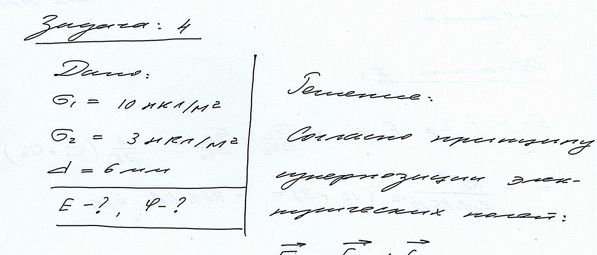 Задача: 4
Дано:
σ₁ = 10 нкл/м²
σ₂ = 3 нкл/м²
d = 6 мм
E -?, φ-?
Решение:
Согласно принципу
суперпозиции элек-
трических полей: